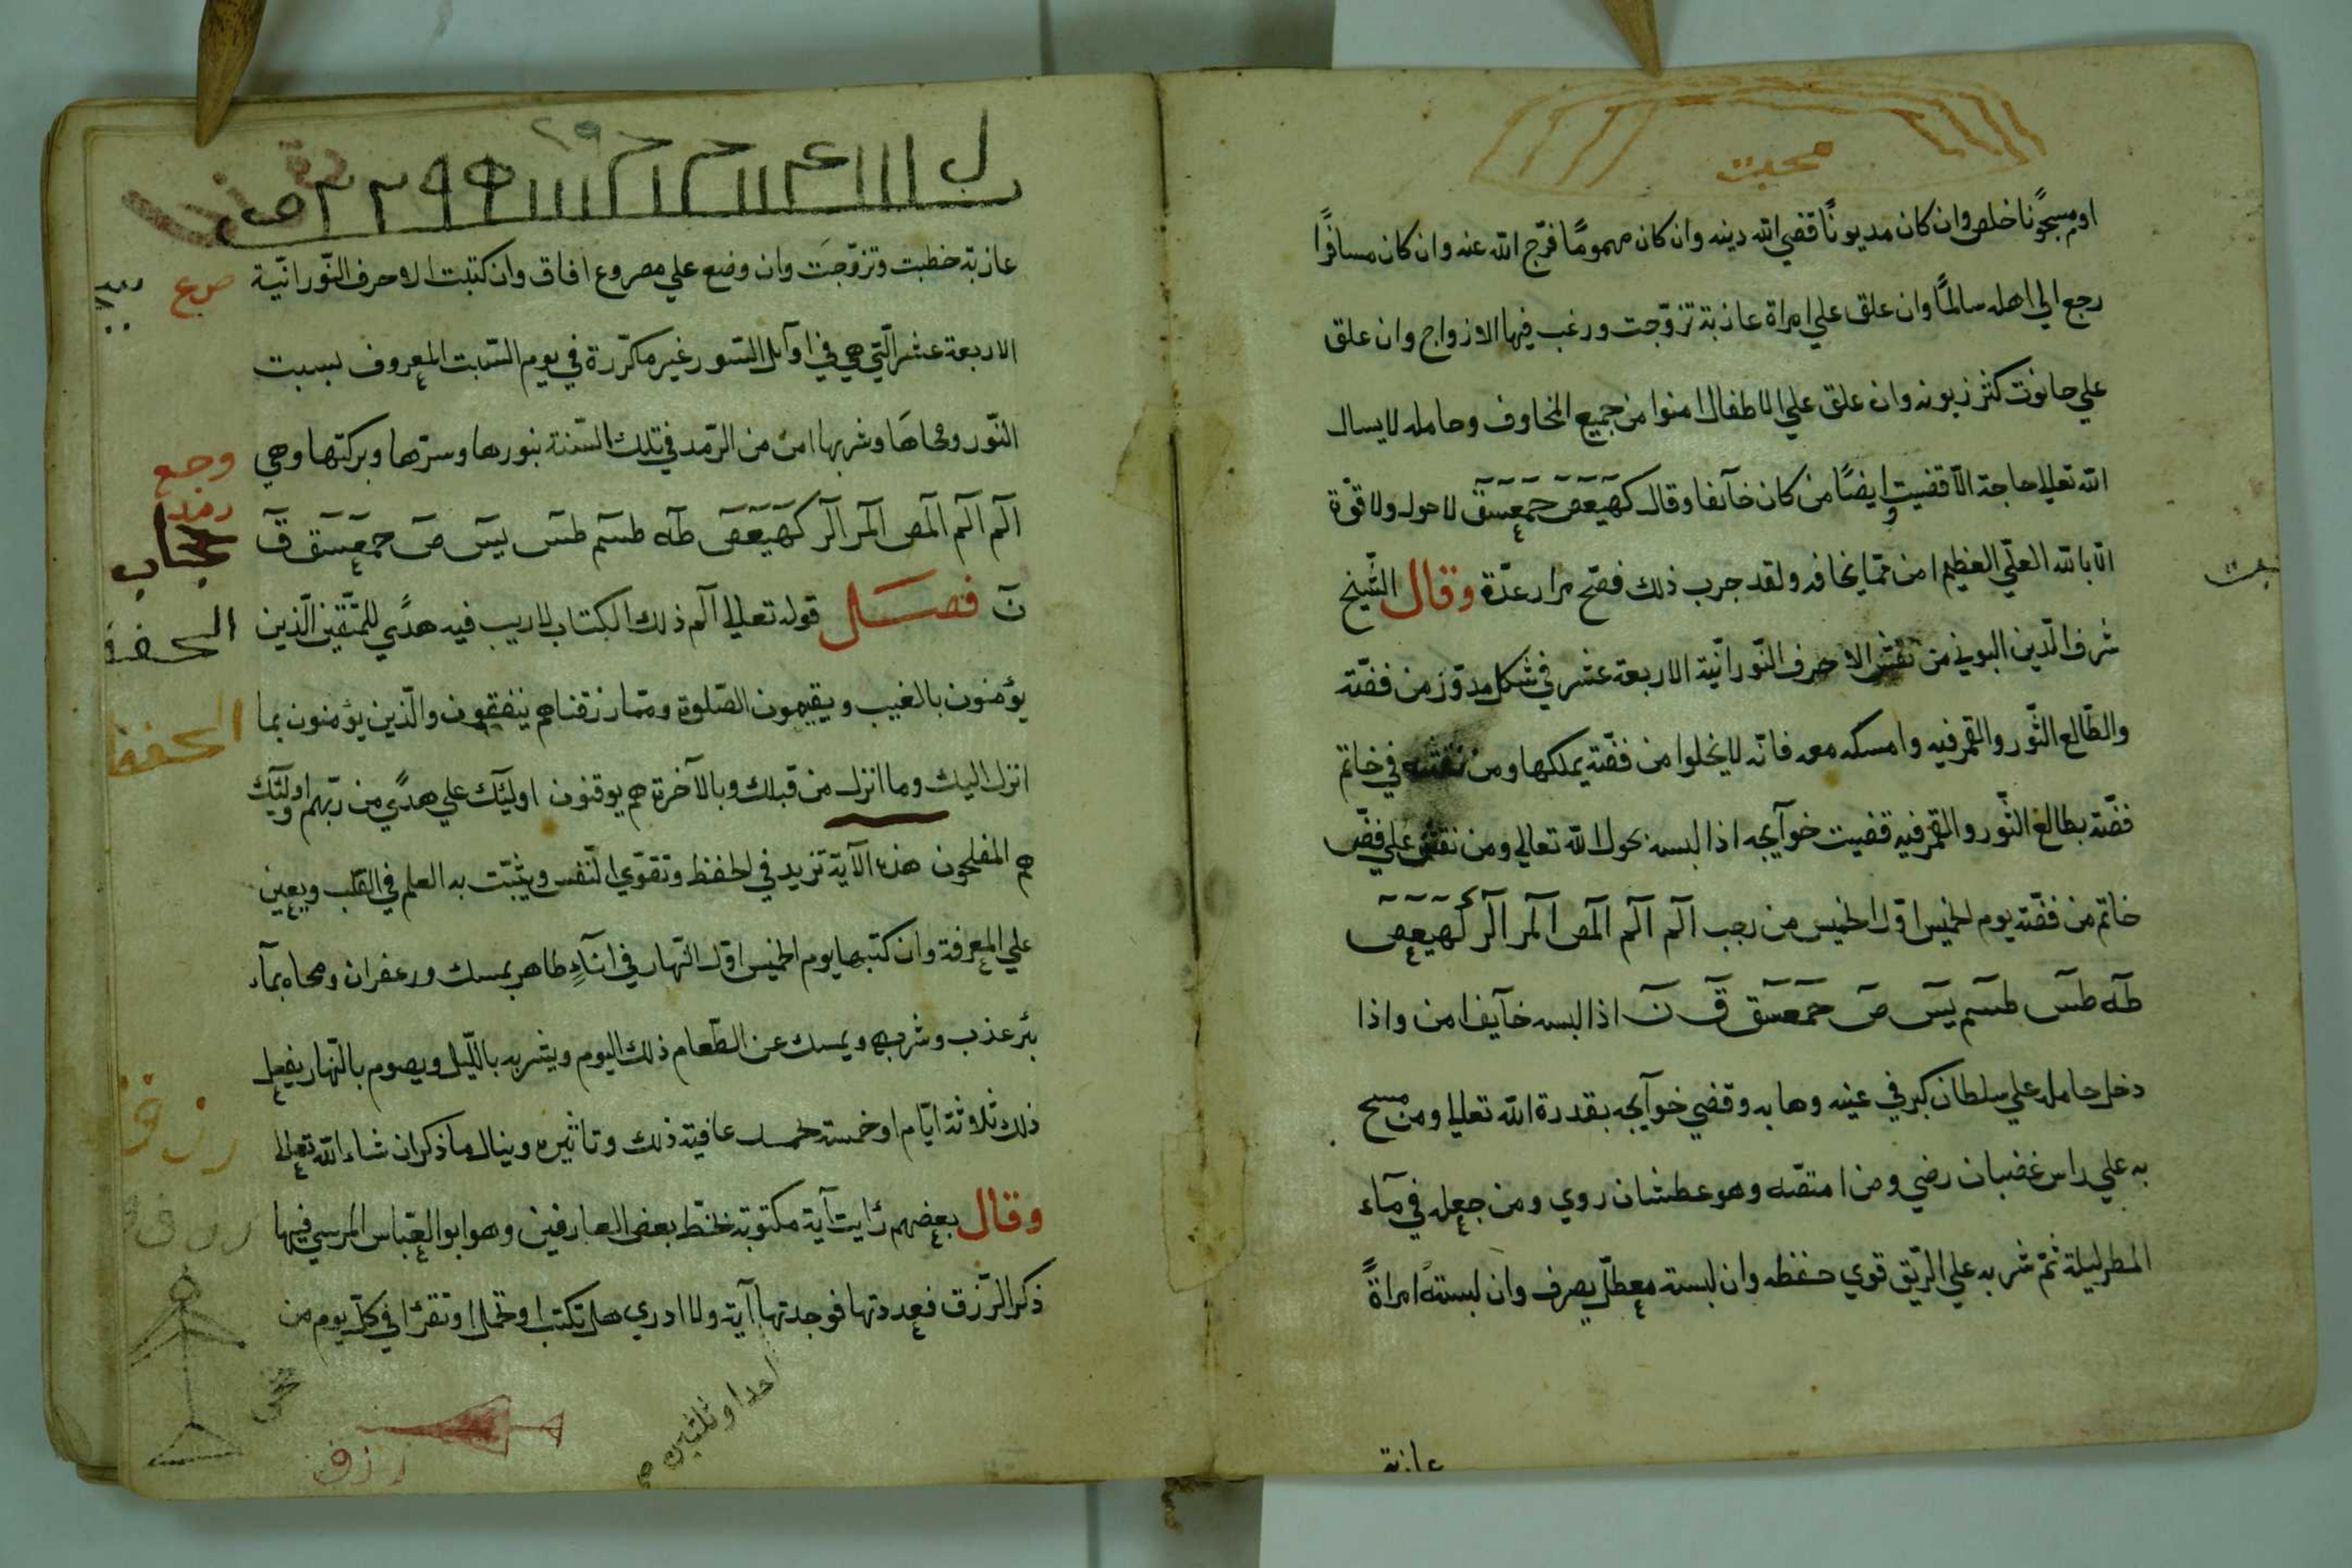 محبت
او مسجونًا خلص وان كان مديونًا قضي الله دينه وان كان مهمومًا فرّج الله عنه وان كان مسافرًا
رجع الي اهله سالمًا وان علق علي امراة عازبة تزوّجت ورغب فيها الازواج وان علق
علي حانوت كثر زبونه وان علق علي الاطفال امنوا من جميع المخاوف وحامله لا يسال
الله تعالي حاجة الّا قضيت وايضًا من كان خآئفا وقال كهيعص حمعسق لا حول ولا قوّة
الّا بالله العلّي العظيم امن ممّا يخافه ولقد جرب ذلك فصّح مرار عدّة وقال الشّيخ
شرف الدّين البوني من نقش الاحرف النّورانيّة الاربعة عشر في شكل مدوّر من فضّة
والطّالع الثّور والقمر فيه وامسكه معه فانّه لا يخلوا من فضّة يملكها ومن نقشه في خاتم
فضّة بطالع الثّور والقمر فيه قضيت خوآيجه اذا لبسه بحول الله تعالي ومن نقش علي فصّ
خاتم من فضّة يوم الخميس اوّل الخميس من رجب الٓم الٓم الٓمص الٓمر الٓر كٓهيعص
طٓه طٓس طٓسم يٓس صٓ حمٓعسق قٓ نٓ اذا لبسه خآيف امن واذا
دخل حامله علي سلطان كبر في عينه وهابه وقضي خوآيجه بقدرة الله تعالي ومن مسح
به علي راس غضبان رضي ومن امتصّه وهو عطشان روي ومن جعله في مآء
المطر ليلة ثمّ شربه علي الرّيق قوي حفظه وان لبسته معطّل يصرف وان لبستهُ امراةً
عازبة
عازبة خطبت وتزوّجَت وان وضع علي مصروع افاق وان كتبت الاحرف النّورانيّة
صرع
الاربعة عشر الّتي هي في اوآيل السّور غير مكرّرة في يوم السّبت المعروف بسبت
النّور ومحاهَا وشربها امن من الرّمد في تلك السّنة بنورها وسرّها وبركتها وهي
وجع
رمد
الٓم الٓم الٓمص الٓمر الٓر كٓهيعص طٓه طٓسم طٓس يٓس صٓ حمٓعسق قٓ
نٓ فصَل قوله تعالي الٓم ذلك الكتاب لا ريب فيه هدًي للمتّقين الّذين
الحفظ
يؤمنون بالغيب ويقيمون الصّلوة وممّا رزقناهم ينفقون والّذين يؤمنون بما
الحفظ
انزل اليك وما انزل من قبلك وبالآخرة هم يوقنون اوليٓك علي هدًي من ربّهم واوليٓك
هم المفلحون هذه الآية تزيد في الحفظ وتقوّي النّفس ويثبّت به العلم في القلب ويعين
علي المعرفة وان كتبها يوم الخميس اوّل النّهار في انآءٍ طاهر بمسك وزعفران ومحاه بمآء
بئر عذب وشربه ويمسك عن الطّعام ذلك اليوم ويشربه باللّيل ويصوم بالنّهار يفعل
ذلك ثلاثة ايّام او خمسة عافية ذلك وتاثيره وينال ما ذكر ان شاء الله تعالي
رزق
وقال بعضهم رايت آية مكتوبة بخطّ بعض العارفين وهو ابو العبّاس المرسي فيها
رزق
ذكر الرّزق فعددتها فوجدتها آية ولا ادري هل تكتب او تحمل او تقرا في كلّ يوم من
احدا وثلثين
رزق